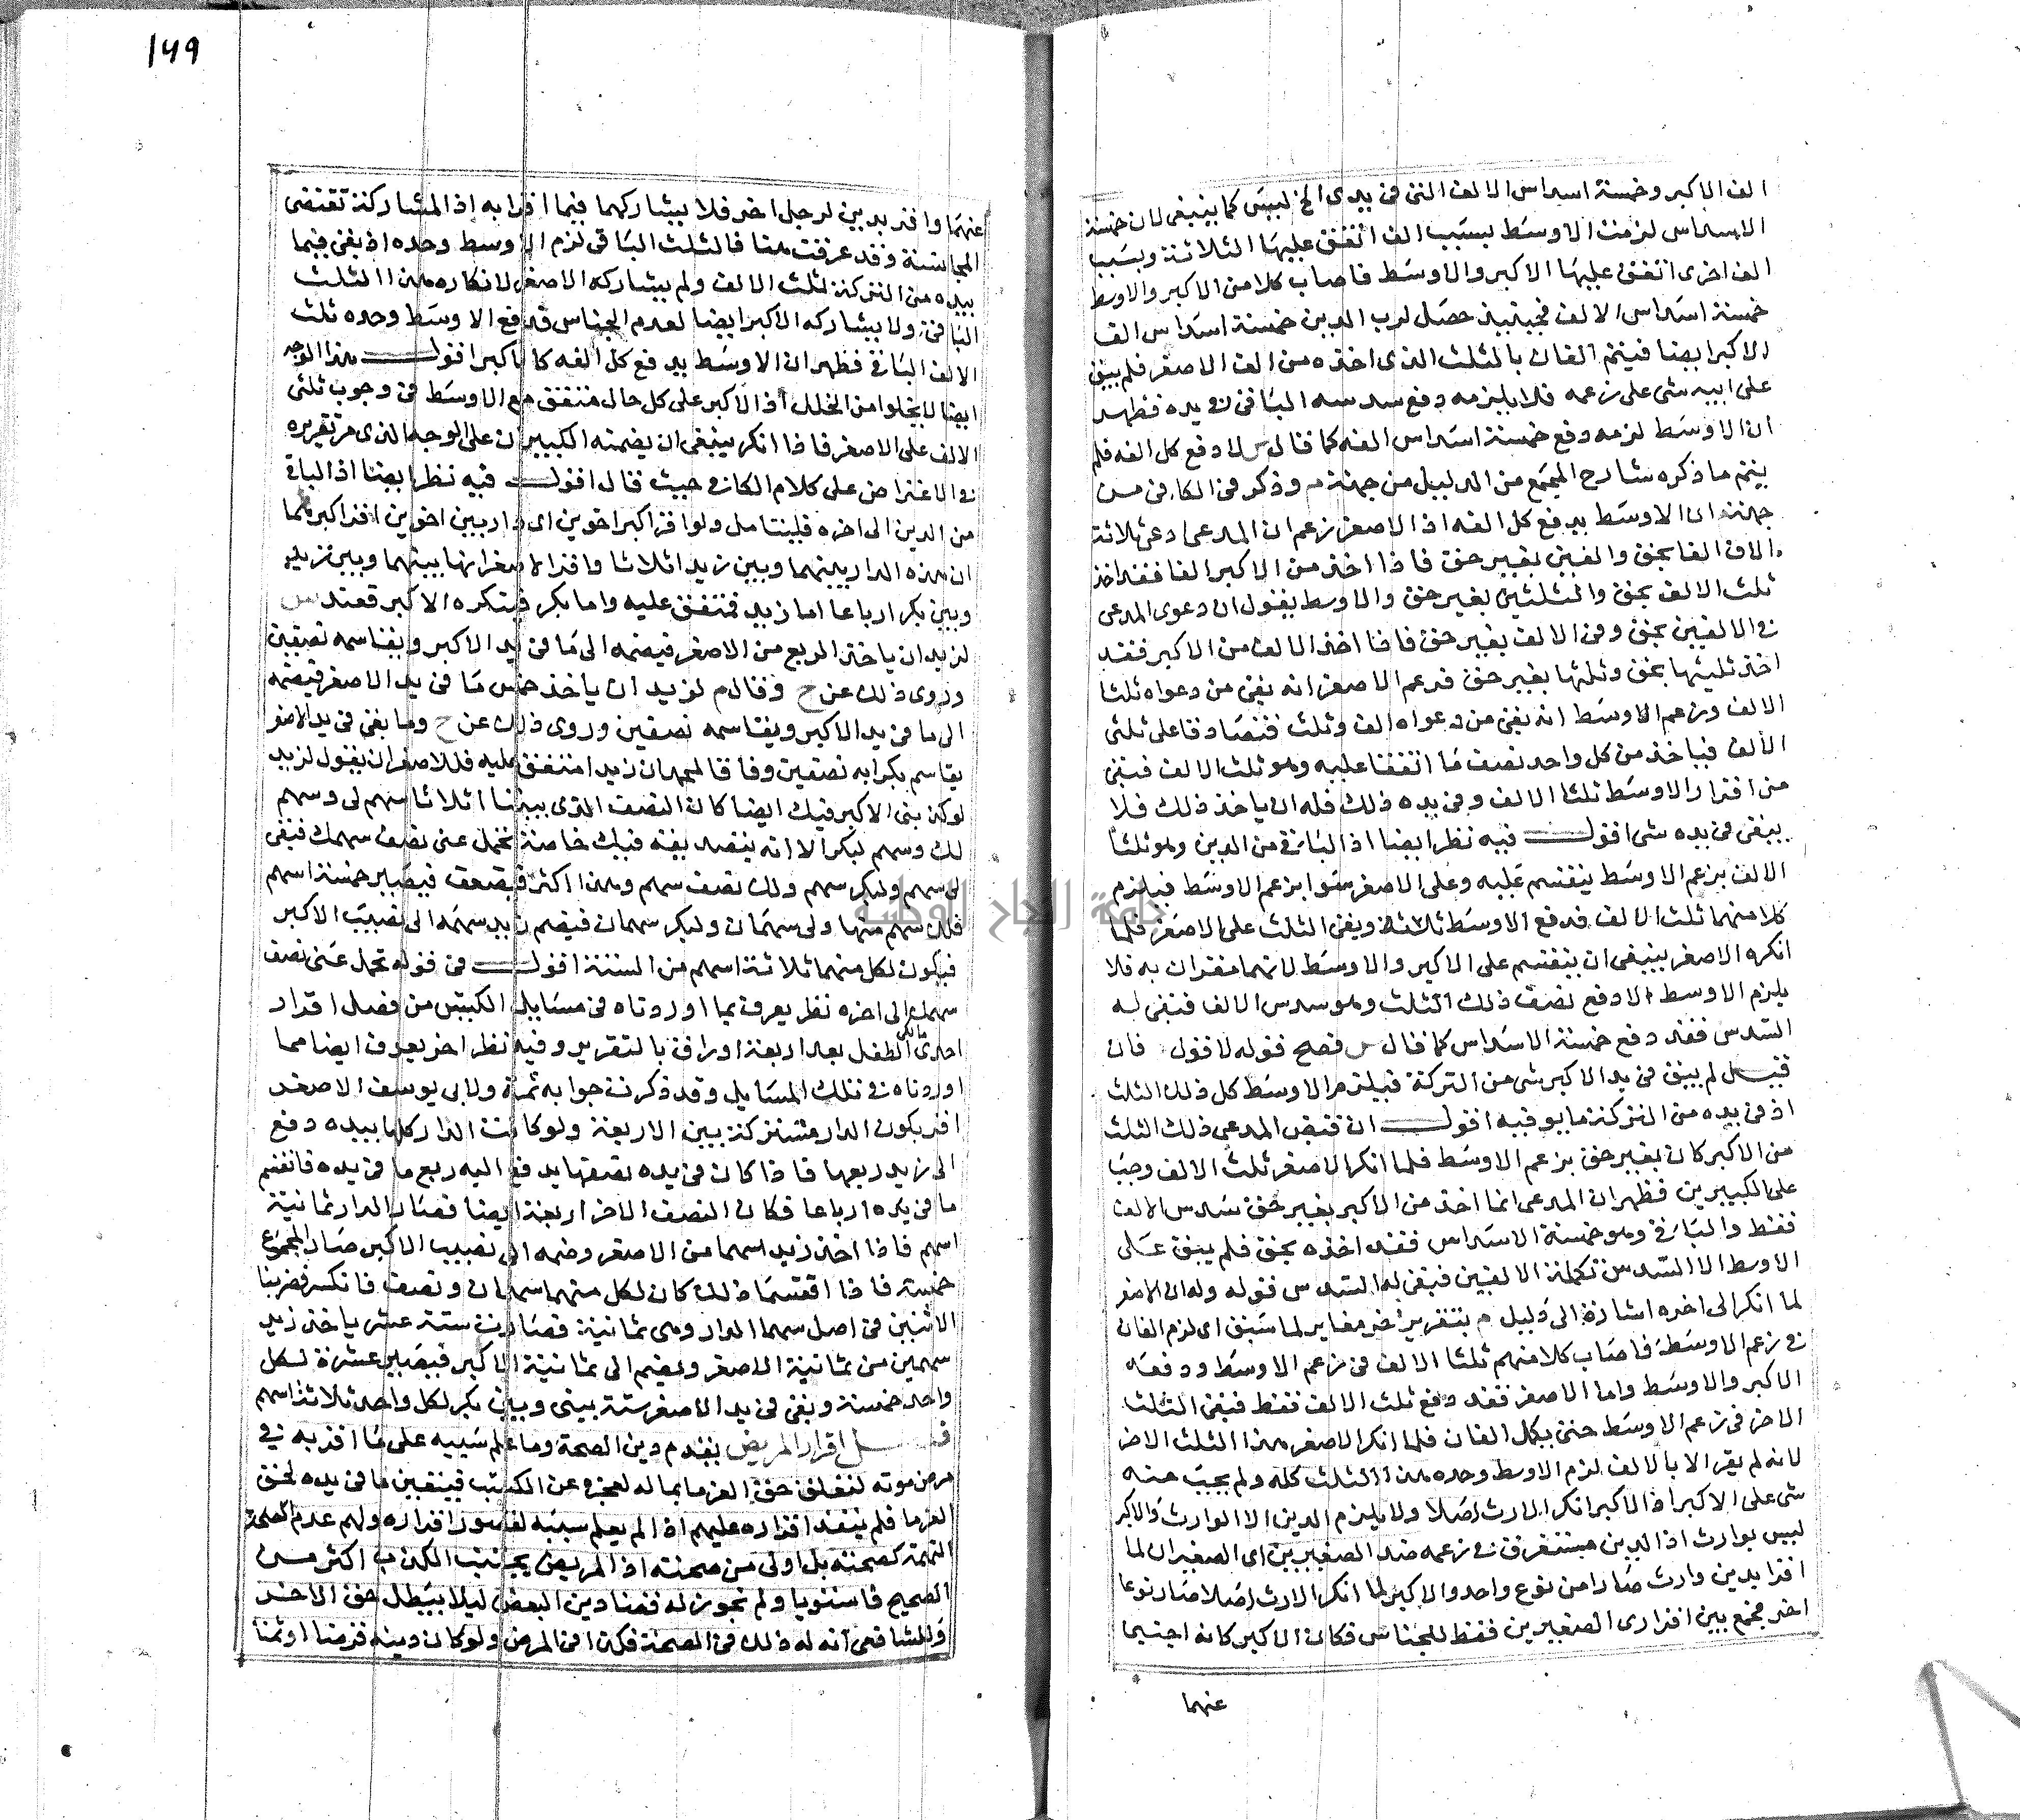 الف الاكبر وخمسة اسداس الالف التى فى يدى الخ ليس كما ينبغى لان خمسة
الاسداس لزمت الاوسط بسبب الف اتفق عليها الثلاثة وبسبب
الف اخرى اتفق عليها الاكبر والاوسط فاصاب كلا من الاكبر والاوسط
خمسة اسداس الالف فحينئذ حصل لرب الدين خمسة اسداس الف
الاكبر ايضا فيتم الفان بالثلث الذى اخذه من الف الاصغر فلم يبق
على ابيه شى على زعمه فلا يلزمه دفع سدسه الباقى فى يده فظهر
ان الاوسط لزمه دفع خمسة اسداس الفه كما قال س لا دفع كل الفه فلم
يتم ما ذكره شارح المجمع من الدليل من جهة م وذكر فى الكافى من
جهته ان الاوسط يدفع كل الفه اذ الاصغر زعم ان المدعى ادعى ثلاثة
الاف الفا بحق والفين بغير حق فاذا اخذ من الاكبر الفا فقد اخذ
ثلث الالف بحق والثلثين بغير حق والاوسط يقول ان دعوى المدعى
فى الالفين بحق وفى الالف بغير حق فاذا اخذ الالف من الاكبر فقد
اخذ ثلثيها بحق وثلثها بغير حق فزعم الاصغر انه بقى من دعواه ثلثا
الالف وزعم الاوسط انه بقى من دعواه الف وثلث فتصادقا على ثلثى
الألف فياخذ من كل واحد نصف ما اتفقا عليه وهو ثلث الالف فبقى
من اقرار الاوسط ثلثا الالف وفى يده ذلك فله ان ياخذ ذلك فلا
يبقى فى يده شى اقول فيه نظر ايضا اذ الباقى من الدين وهو ثلثا
الالف بزعم الاوسط ينقسم عليه وعلى الاصغر سوا بزعم الاوسط فيلزم
كلا منهما ثلث الالف فدفع الاوسط ثلاثة وبقى الثلث على الاصغر فلما
انكره الاصغر ينبغى ان ينقسم على الاكبر والاوسط لانهما مقران به فلا
يلزم الاوسط الا دفع نصف ذلك الثلث وهو سدس الالف فبقى له
السدس فقد دفع خمسة الاسداس كما قال س فصح قوله لا قول فان
قيل لم يبق فى يد الاكبر شى من التركة فيلزم الاوسط كل ذلك الثلث
اذ فى يده من التركة ما يوفيه اقول ان قبض المدعى ذلك الثلث
من الاكبر كان بغير حق بزعم الاوسط فلما انكر الاصغر ثلث الالف وجبا
على الكبيرين فظهر ان المدعى انما اخذ من الاكبر بغير حق سدس الالف
فقط والباقى وهو خمسة الاسداس فقد اخذه بحق فلم يبق على
الاوسط الا السدس تكملة الالفين فبقى له السدس قوله وله ان الاصغر
لما انكر الى اخره اشارة الى دليل م بتقرير اخر مغاير لما سبق اى لزم الفان
فى زعم الاوسط فاصاب كلا منهم ثلثا الالف فى زعم الاوسط ودفعه
الاكبر والاوسط واما الاصغر فقد دفع ثلث الالف فقط فبقى الثلث
الاخر فى زعم الاوسط حتى يكمل الفان فلما انكر الاصغر هذا الثلث الاخر
لانه لم يقر الا بالالف لزم الاوسط وحده هذا الثلث كله ولم يجب منه
شى على الاكبر اذ الاكبر انكر الارث اصلا ولا يلزم الدين الا الوارث والاكبر
ليس بوارث اذ الدين مستغرق فى زعمه ضد الصغيرين اى الصغيران لما
اقرا بدين وارث صارا من نوع واحد والاكبر لما انكر الارث اصلا صار نوعا
اخر فجمع بين اقرارى الصغيرين فقط للجناس فكان الاكبر كانه اجنبيا
عنهما
149
عنهما واقر بدين لرجل اخر فلا يشاركهما فيما اقرا به اذ المشاركة تقتضى
المجانسة وقد عرفت هذا فالثلث الباقى لزم الاوسط وحده اذ بقى فيما
بيده من التركة ثلث الالف ولم يشاركه الاصغر لانكاره هذا الثلث
الباقى ولا يشاركه الاكبر ايضا لعدم الجناس فدفع الاوسط وحده ثلث
الالف الباقى فظهر ان الاوسط يدفع كل الفه كالاكبر اقول هذا الوجه
ايضا لا يخلوا من الخلل اذ الاكبر على كل حال متفق مع الاوسط فى وجوب ثلثى
الالف على الاصغر فاذا انكر ينبغى ان يضمنه الكبيران على الوجه الذى مر تقريره
فى الاعتراض على كلام الكافى حيث قال اقول فيه نظر ايضا اذ الباقى
من الدين الى اخره فليتامل ولو اقر اكبر اخوين اى دار بين اخوين اقر اكبرهما
ان هذه الدار بينهما وبين زيد اثلاثا واقر الاصغر انها بينهما وبين زيد
وبين بكر ارباعا اما زيد فمتفق عليه واما بكر فينكره الاكبر فعند س
لزيد ان ياخذ الربع من الاصغر فيضمه الى ما فى يد الاكبر ويقاسمه نصفين
وروى ذلك عن ح وقال م لزيد ان ياخذ خمس ما فى يد الاصغر فيضمه
الى ما فى يد الاكبر ويقاسمه نصفين وروى ذلك عن ح وما بقى فى يد الاصغر
يقاسم بكرا به نصفين وفاقا لمحمد ان زيدا متفق عليه فللاصغر ان يقول لزيد
لو كذبنى الاكبر فيك ايضا كان النصف الذى بيدنا اثلاثا سهم لى وسهم
لك وسهم لبكر الا انه بتصديقه فيك خاصة تحمل عنى نصف سهمك فبقى
لى سهم ولبكر سهم ولك نصف سهم وهذا اكثر فيضعف فيصير خمسة اسهم
فلك سهم منها ولى سهمان ولبكر سهمان فيضم زيد سهمه الى نصيب الاكبر
فيكون لكل منهما ثلاثة اسهم من الستة اقول فى قوله تحمل عنى نصف
سهمك الى اخره نظر يعرف بما اوردناه فى مسايل الكيس من فصل اقرار
احدى مالكى الطفل بعد اربعة اوراق بالتقريب وفيه نظر اخر يعرف ايضا مما
اوردناه فى تلك المسايل وقد ذكرت جوابه ثمة ولابى يوسف الاصغر
اقر بكون الدار مشتركة بين الاربعة ولو كانت الدار كلها بيده دفع
الى زيد ربعها فاذا كان فى يده نصفها يدفع اليه ربع ما فى يده فانقسم
ما فى يده ارباعا فكان النصف الاخر اربعة ايضا فصار الدار ثمانية
اسهم فاذا اخذ زيد اسهما من الاصغر وضمه الى نصيب الاكبر صار المجموع
خمسة فاذا اقتسما ذلك كان لكل منهما سهمان ونصف فانكسر فضربنا
الاثنين فى اصل سهما الدار وهى ثمانية فصارت ستة عشر ياخذ زيد
سهمين من ثمانية الاصغر ويضم الى ثمانية الاكبر فيصير عشرة لكل
واحد خمسة وبقى فى يد الاصغر ستة بينى وبين بكر لكل واحد ثلاثة اسهم
فصل اقرار المريض يقدم دين الصحة وما علم سببه على ما اقر به فى
مرض موته لتعلق حق الغرما بماله لعجزه عن الكسب فيتعين ما فى يده لحق
الغرما فلم ينفذ اقراره عليهم اذا لم يعلم سببه لقصور اقراره ولهم عدم الصحة
التهمة كصحته بل اولى من صحته اذ المريض يجتنب الكذب اكثر من
الصحيح فاستويا ولم تجوز له قضا دين البعض ليلا يبطل حق الاخر
وللشافعى انه له ذلك فى الصحة فكذا فى المرض ولو كان دينه قرضا او ثمنا
جامعة النجاح الوطنية